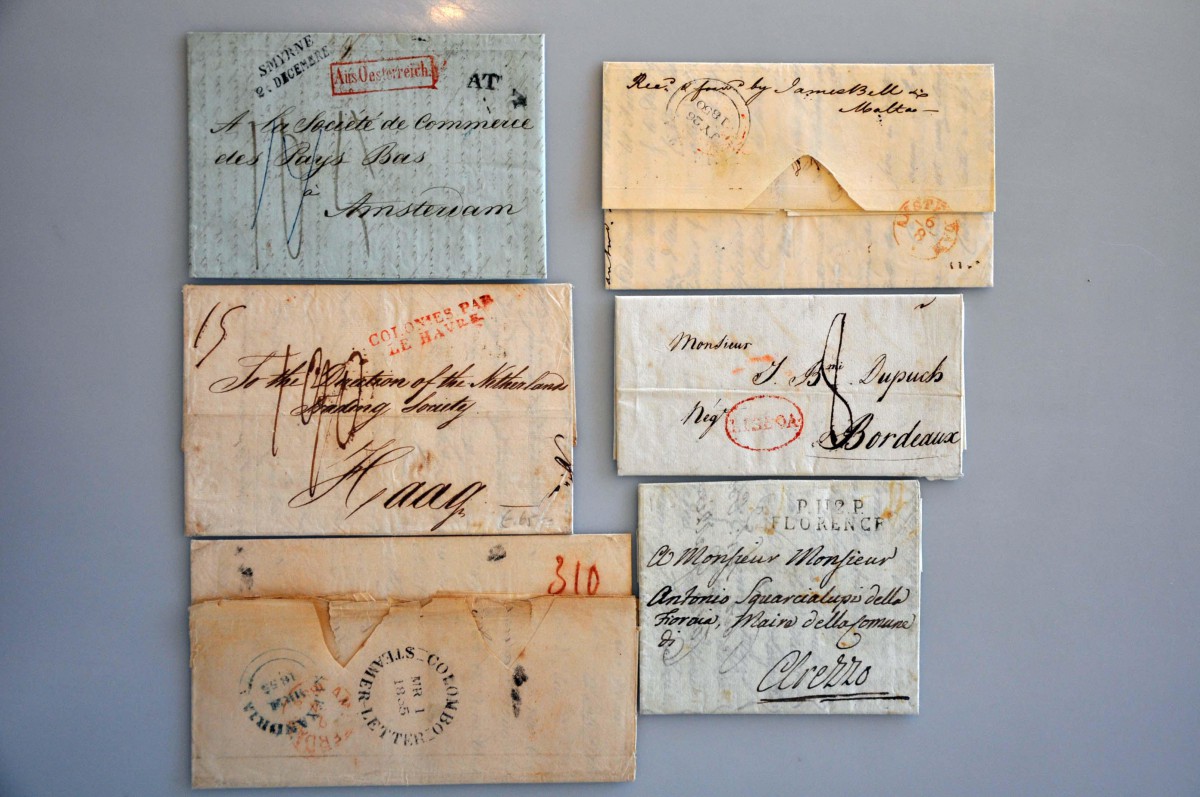 SMYRNE
2. DECEMBRE
Aus Oesterreich.
AT
A la Société de Commerce
des Pays Bas
à
Amsterdam
15
COLONIES PAR
LE HAVRE
To the Direction of the Netherlands
Trading Society
Haag
310
COLOMBO
STEAMER LETTER
MR 1
1855
ALEXANDRIA
Recd & forwd by James Bell & Co
Malta
JY 26
1860
AMSTERDAM
16
8
Monsieur
J. Bmi Dupuch
Négt
LISBOA
8
Bordeaux
P.112.P.
FLORENCE
A Monsieur Monsieur
Antonio Squarcialupi della
Maire della Comune
di
Arezzo